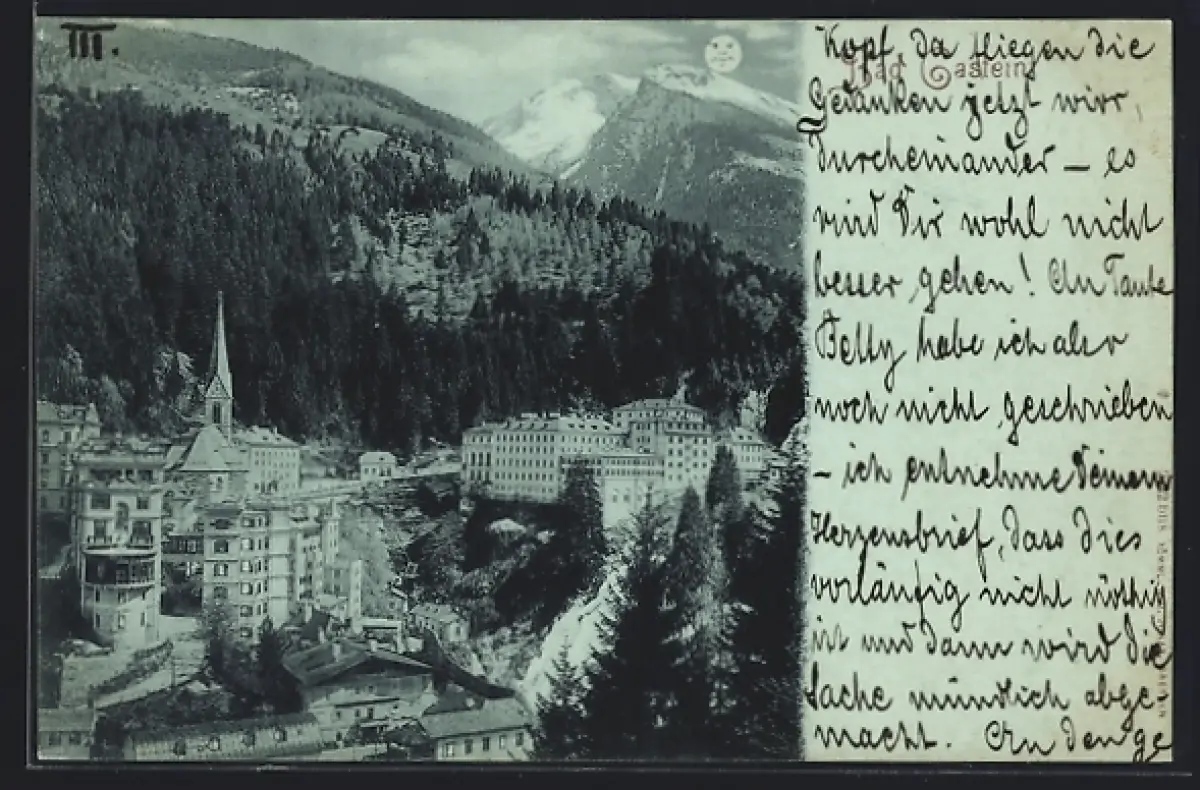 III.
Bad Gastein
Kopf, da fliegen die
Gedanken jetzt wirr,
durcheinander – es
wird Dir wohl nicht
besser gehen! An Tante
Betty habe ich also
noch nicht geschrieben
– ich entnehme Deinem
Herzensbrief, dass dies
vorläufig nicht nöthig
ist und dann wird die
Sache mündlich abge
macht. An den ge